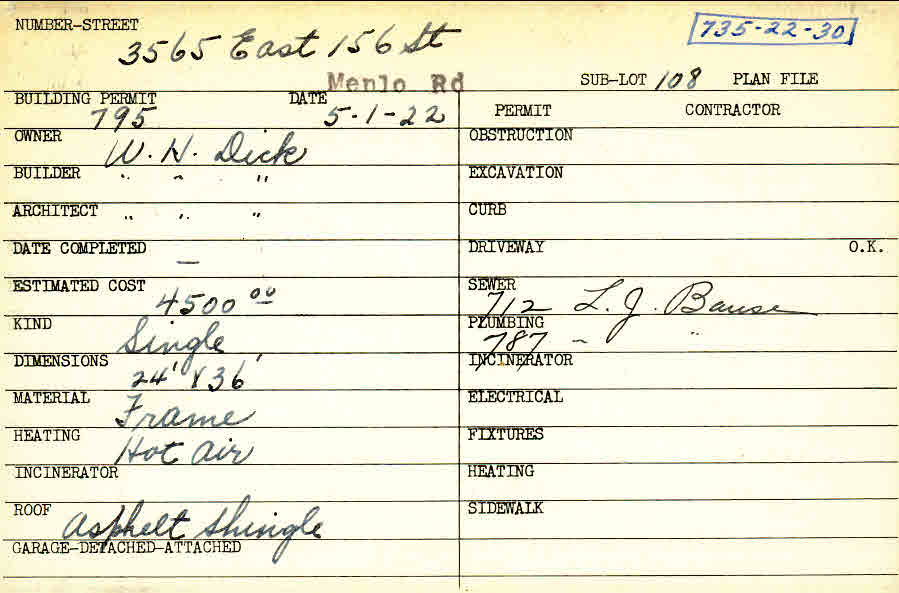 NUMBER-STREET
3565 East 156 St
735-22-30
Menlo Rd
SUB-LOT 108 PLAN FILE
BUILDING PERMIT 795 DATE 5-1-22
PERMIT CONTRACTOR
OWNER W. H. Dick
OBSTRUCTION
BUILDER " " "
EXCAVATION
ARCHITECT " " "
CURB
DATE COMPLETED —
DRIVEWAY O.K.
ESTIMATED COST 4500 00
SEWER 712 L. J. Bause
KIND Single
PLUMBING 787 " "
DIMENSIONS 24' x 36'
INCINERATOR
MATERIAL Frame
ELECTRICAL
HEATING Hot Air
FIXTURES
INCINERATOR
HEATING
ROOF Asphelt Shingle
SIDEWALK
GARAGE-DETACHED-ATTACHED